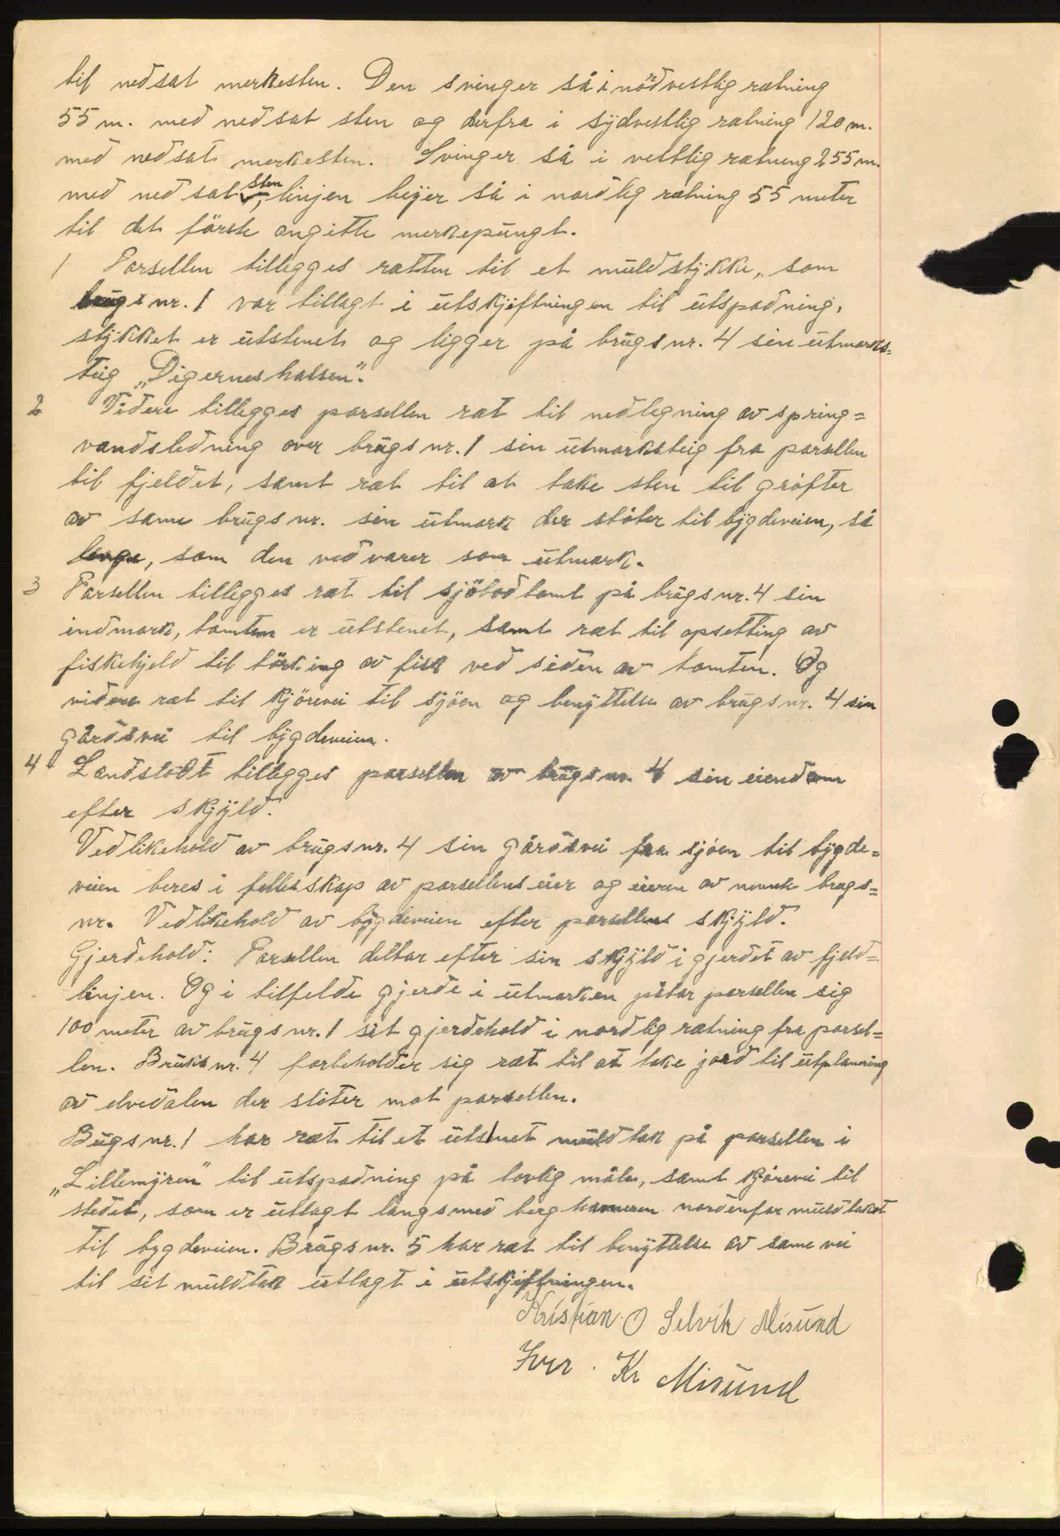 til nedsat merkesten. Den svinger så i nördvestlig rætning
55 m. med nedsat sten og derfra i sydvestlig rætning 120 m.
med nedsat merkesten. Svinger så i vestlig rætning 255 m.
med nedsat sten, linjen beyer så i nordlig rætning 55 meter
til det förste angitte merkepungt.
1 Parsellen tillegges rætten til et muldstykke, som
brugs nr. 1 var tillagt i utskiftningen til utspadning,
stykket er utstenet og ligger på brugsnr. 4 sin utmarks-
teig "Digerneshalsen".
2 Videre tillegges parsellen ræt til nedlegning av spring=
vandsledning over brugsnr. 1 sin utmarksteig fra parsellen
til fjeldet, samt ræt til at take sten til gröfter
av same brugsnr. sin utmark der stöter til bygdeveien, så
lenge, som den vedvarer som utmark.
3 Parsellen tillegges ræt til sjöbodtomt på brugsnr. 4 sin
indmark, tomten er utstenet, samt ræt til opsetting av
fiskehjeld til törking av fisk ved siden av tomten. Og
videre ræt til kjörevei til sjöen og benyttelse av brugsnr. 4 sin
gårdsvei til bygdeveien.
4 Landslodt tillegges parsellen av brugsnr. 4 sin eiendom
efter skjyld.
Vedlikehold av brugsnr. 4 sin gårdsvei fra sjöen til bygde=
veien beres i fellesskap av parsellens eier og eieren av nevnte brugs=
nr. Vedlikehold av bygdeveien efter parsellens skjyld.
Gjerdehold: Parsellen deltar efter sin skjyld i gjerdet av fjeld=
linjen. Og i tilfelde gjerde i utmarken påtar parsellen sig
100 meter av brugsnr. 1 sit gjerdehold i nordlig rætning fra parsel=
len. Bruksnr. 4 forbeholder sig ræt til at take jord til utplanering
av elvedalen der stöter mot parsellen.
Bugsnr. 1 har ræt til et utstenet muldtak på parsellen i
"Littemyren" til utspadning på lovlig måte, samt kjörevei til
stedet, som er utlagt langsmed berghameren nordenfor muldtaket
til bygdeveien. Brugsnr. 5 har ræt til benyttelse av same vei
til sit muldtak utlagt i utskiftningen.
Kristian O Selvik Misund
Iver Kr Misund